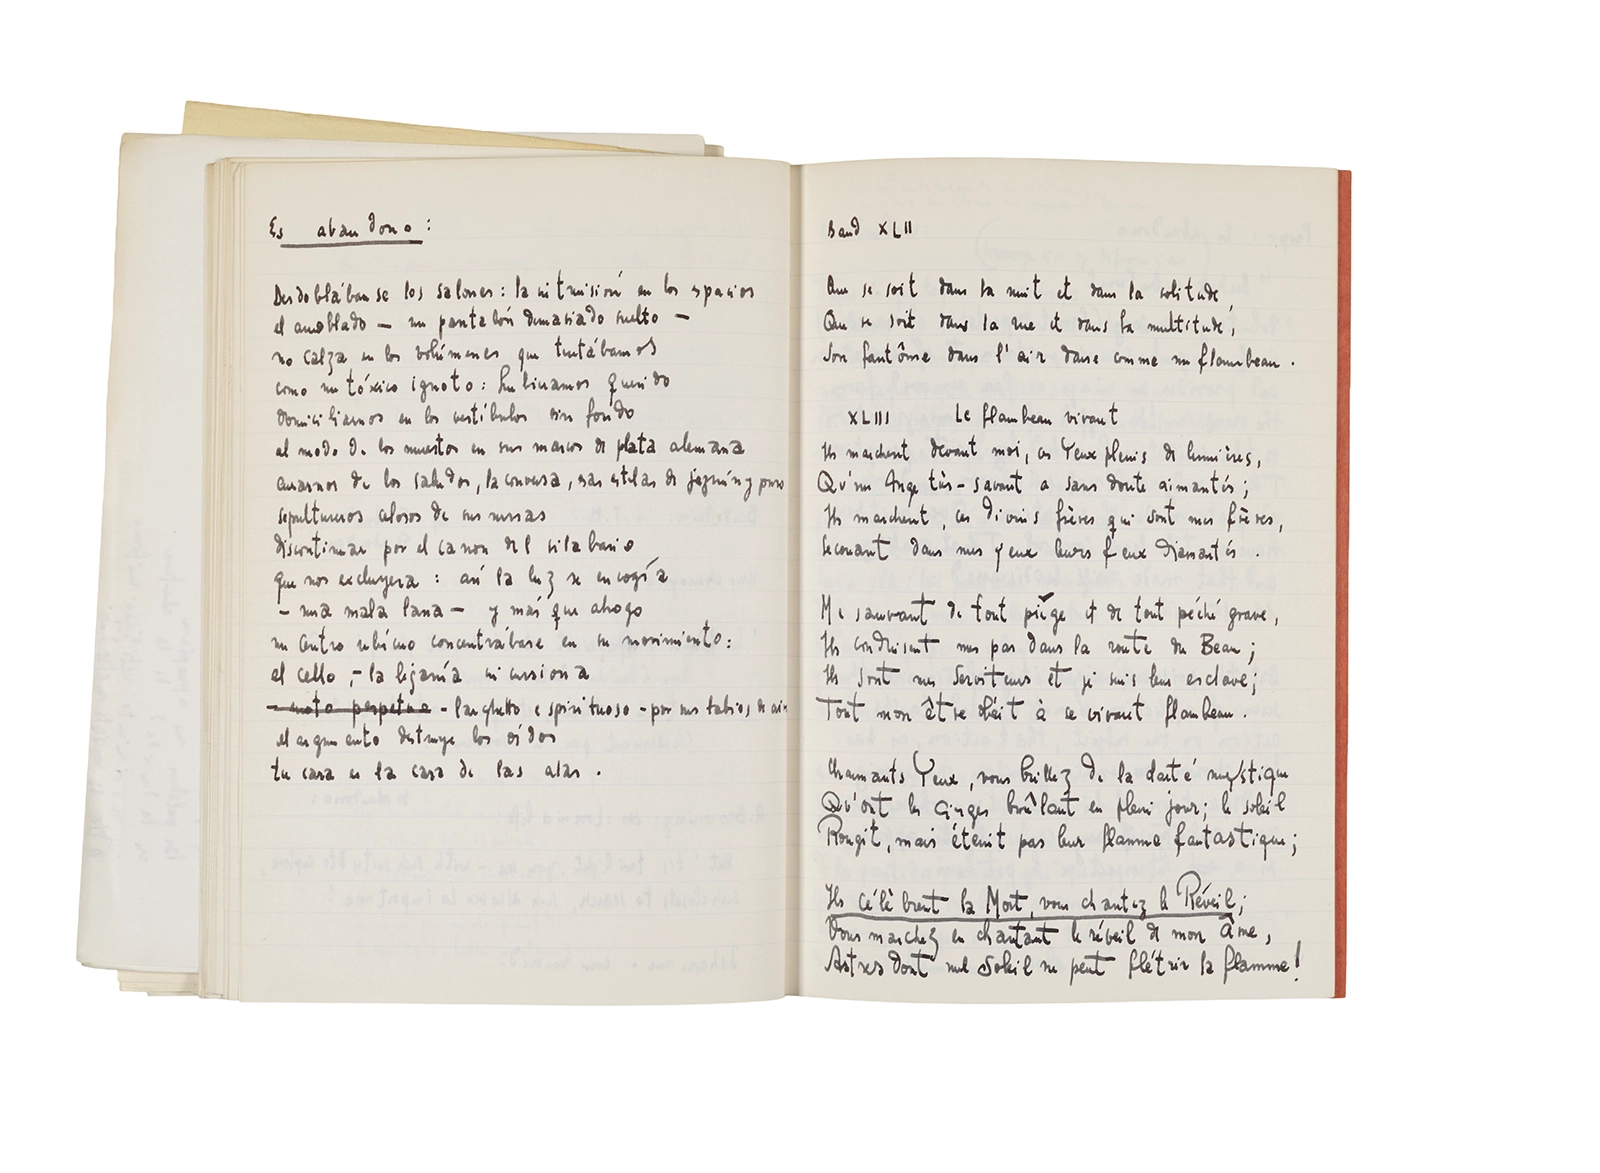 Es abandono:
Desdoblábanse los salones: la intrusión en los espacios
el amoblado — un pantalón demasiado suelto —
no calza en los volúmenes que tentábamos
como un tóxico ignoto: hubiéramos querido
domiciliarnos en los vestíbulos sin fondo
al modo de los muertos en sus marcos de plata alemana
curarnos de los saludos, la conversa, esas estelas de jazmín y puro
sepultureros celosos de sus musas
discontinuar por el canon del silabario
que nos excluyera: así la luz se encogía
— una mala lana — y más que ahogo
un centro ubicuo concentrábase en su movimiento:
el cello, – la lejanía incursiona
– moto perpetuo – larghetto e spirituoso – por sus labios de air
el argumento destruye los oídos
tu casa es la casa de las alas.
Baud XLII
Que ce soit dans la nuit et dans la solitude,
Que ce soit dans la rue et dans la multitude,
Son fantôme dans l'air danse comme un flambeau.
XLIII Le flambeau vivant
Ils marchent devant moi, ces Yeux pleins de lumières,
Qu'un Ange très-savant a sans doute aimantés;
Ils marchent, ces divins frères qui sont mes frères,
Secouant dans mes yeux leurs feux diamantés.
Me sauvant de tout piège et de tout péché grave,
Ils conduisent mes pas dans la route du Beau;
Ils sont mes serviteurs et je suis leur esclave;
Tout mon être obéit à ce vivant flambeau.
Charmants Yeux, vous brillez de la clarté mystique
Qu'ont les cierges brûlant en plein jour; le soleil
Rougit, mais éteint pas leur flamme fantastique;
Ils célèbrent la Mort, vous chantez le Réveil;
Vous marchez en chantant le réveil de mon âme,
Astres dont nul Soleil ne peut flétrir la flamme!